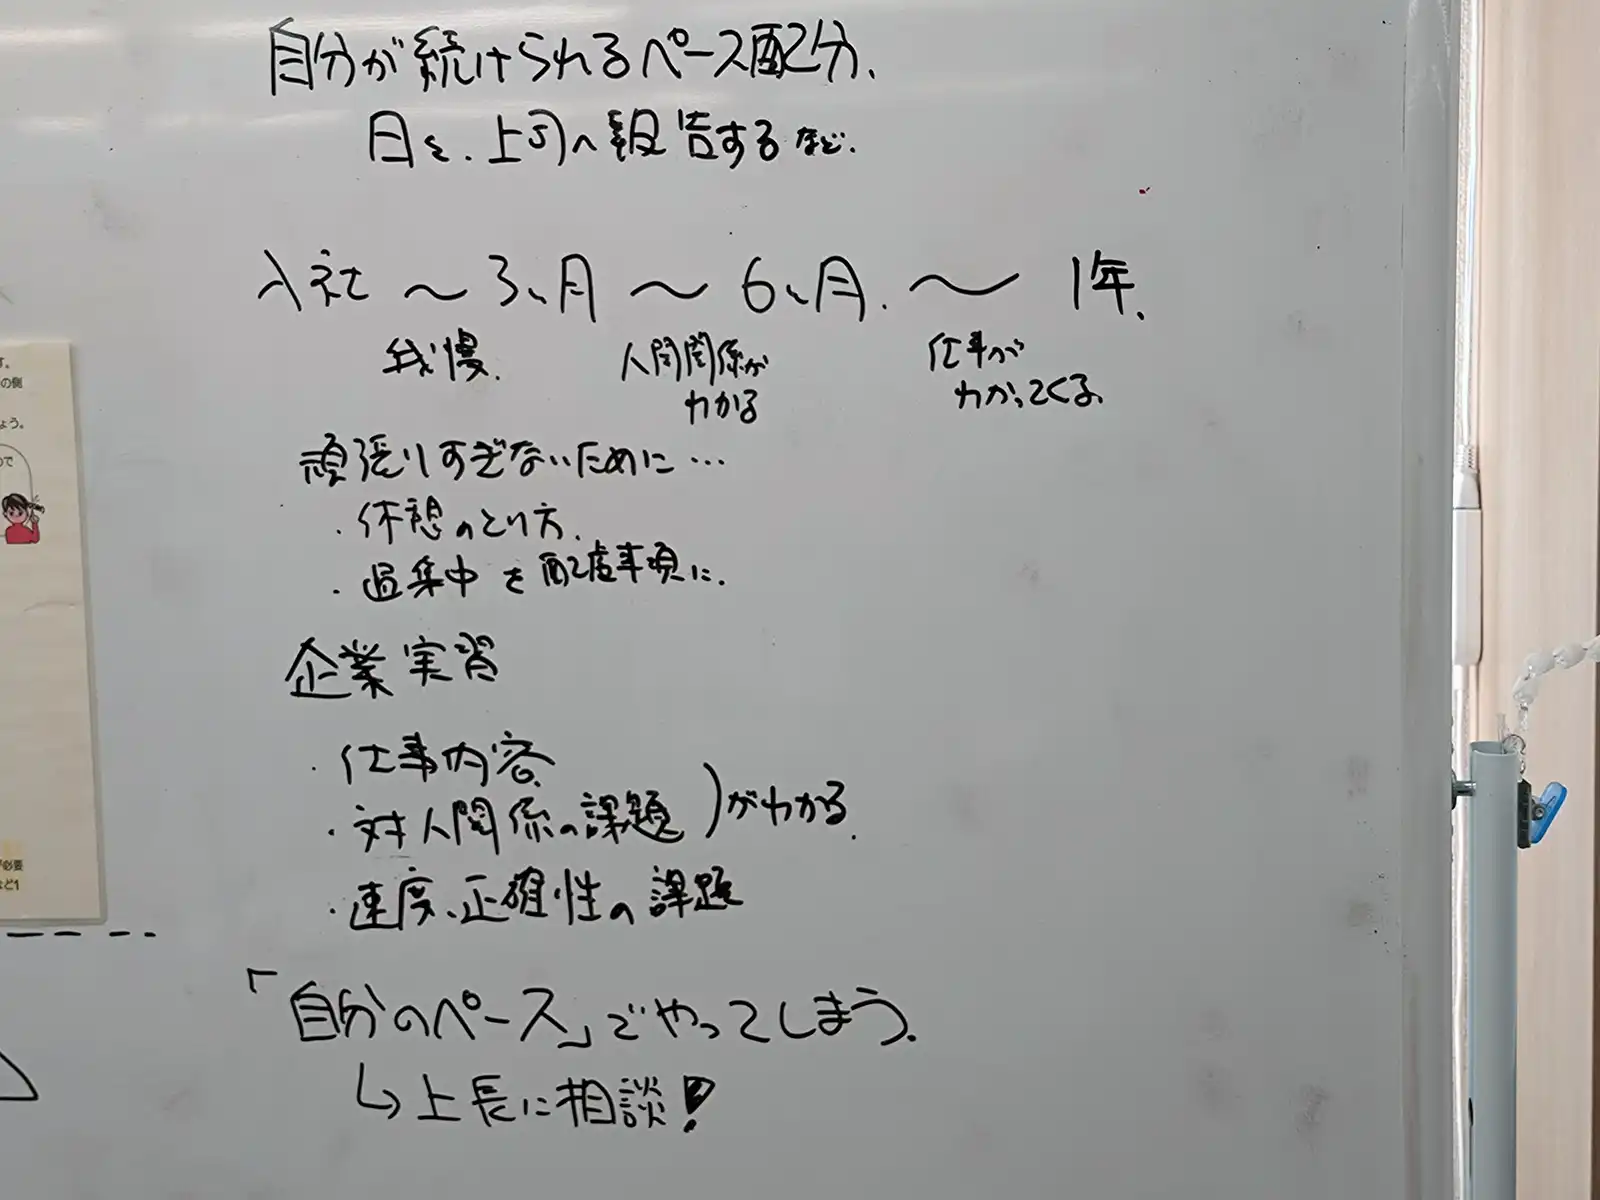 自分が続けられるペース配分.
日々、上司へ報告するなど.
入社 〜 3ヶ月 〜 6ヶ月. 〜 1年.
我慢.
人間関係が
わかる
仕事が
わかってくる.
頑張りすぎないために…
・休憩のとり方.
・過集中を配慮事項に.
企業実習
・仕事内容
・対人関係の課題 )がわかる.
・速度、正確性の課題
「自分のペース」でやってしまう.
↳上長に相談!
す。
の側
ょう。
で
必要
ど1